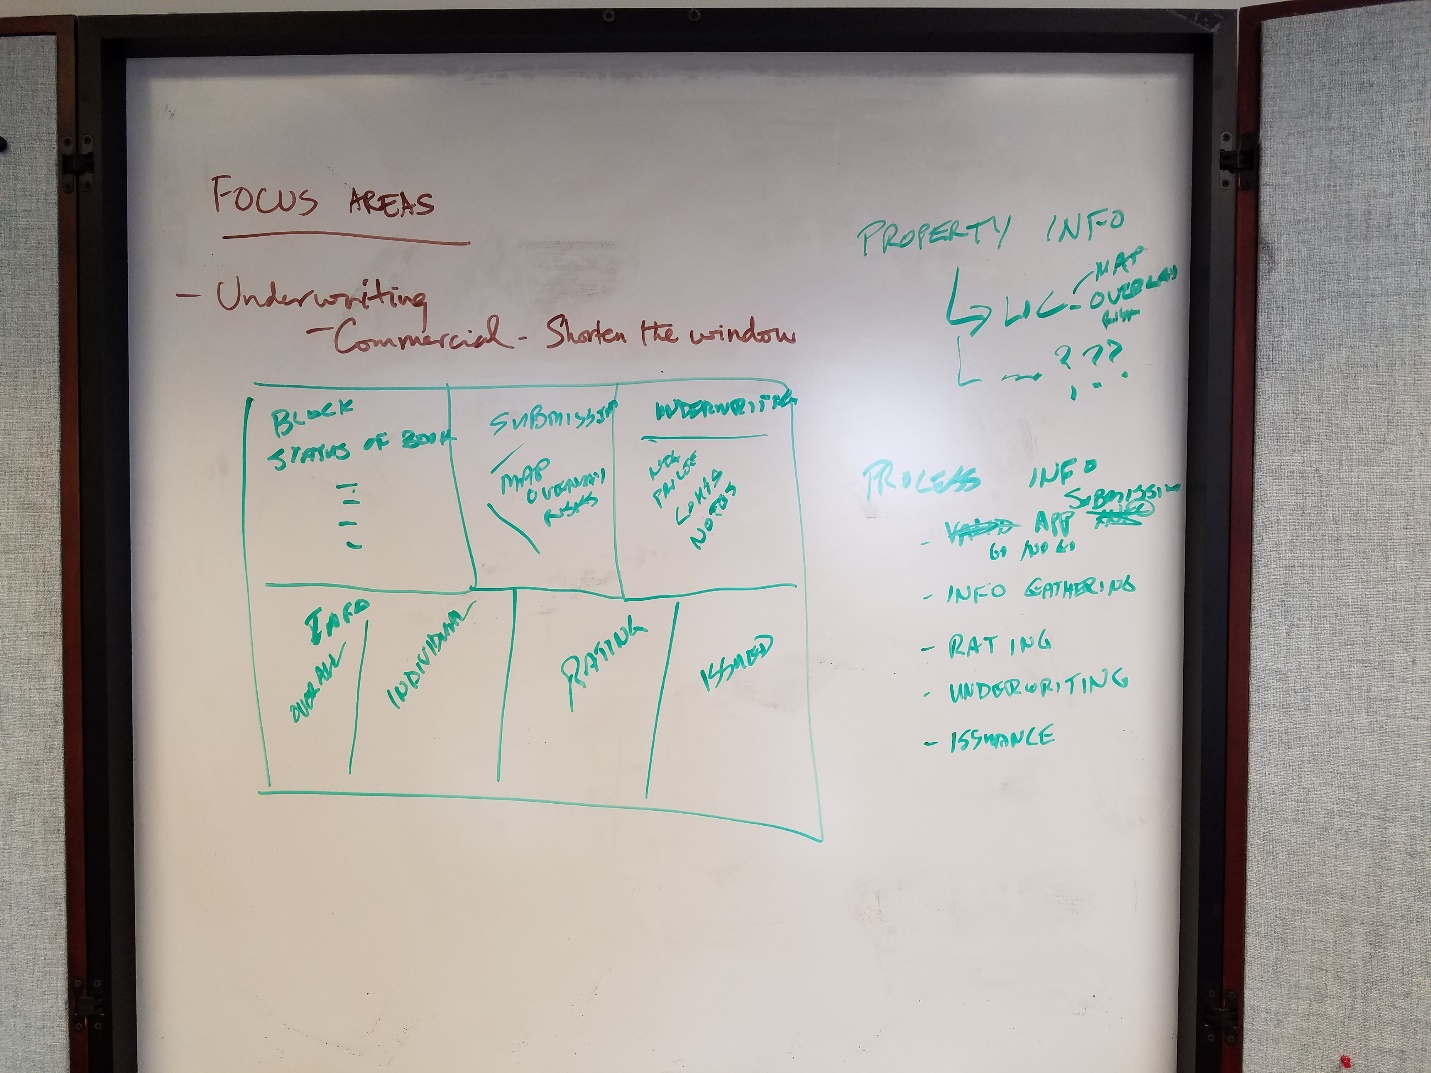 FOCUS AREAS
- Underwriting
- Commercial - Shorten the window
BLOCK
STATUS OF BOOK
SUBMISSION
MAP
OVERLAY
RISKS
UNDERWRITING
NOTES
INFO
OVERALL
INDIVIDUAL
RATING
ISSUED
PROPERTY INFO
MAP
OVERLAY
???
PROCESS INFO
SUBMISSION
- APP
GO / NO GO
- INFO GATHERING
- RATING
- UNDERWRITING
- ISSUANCE